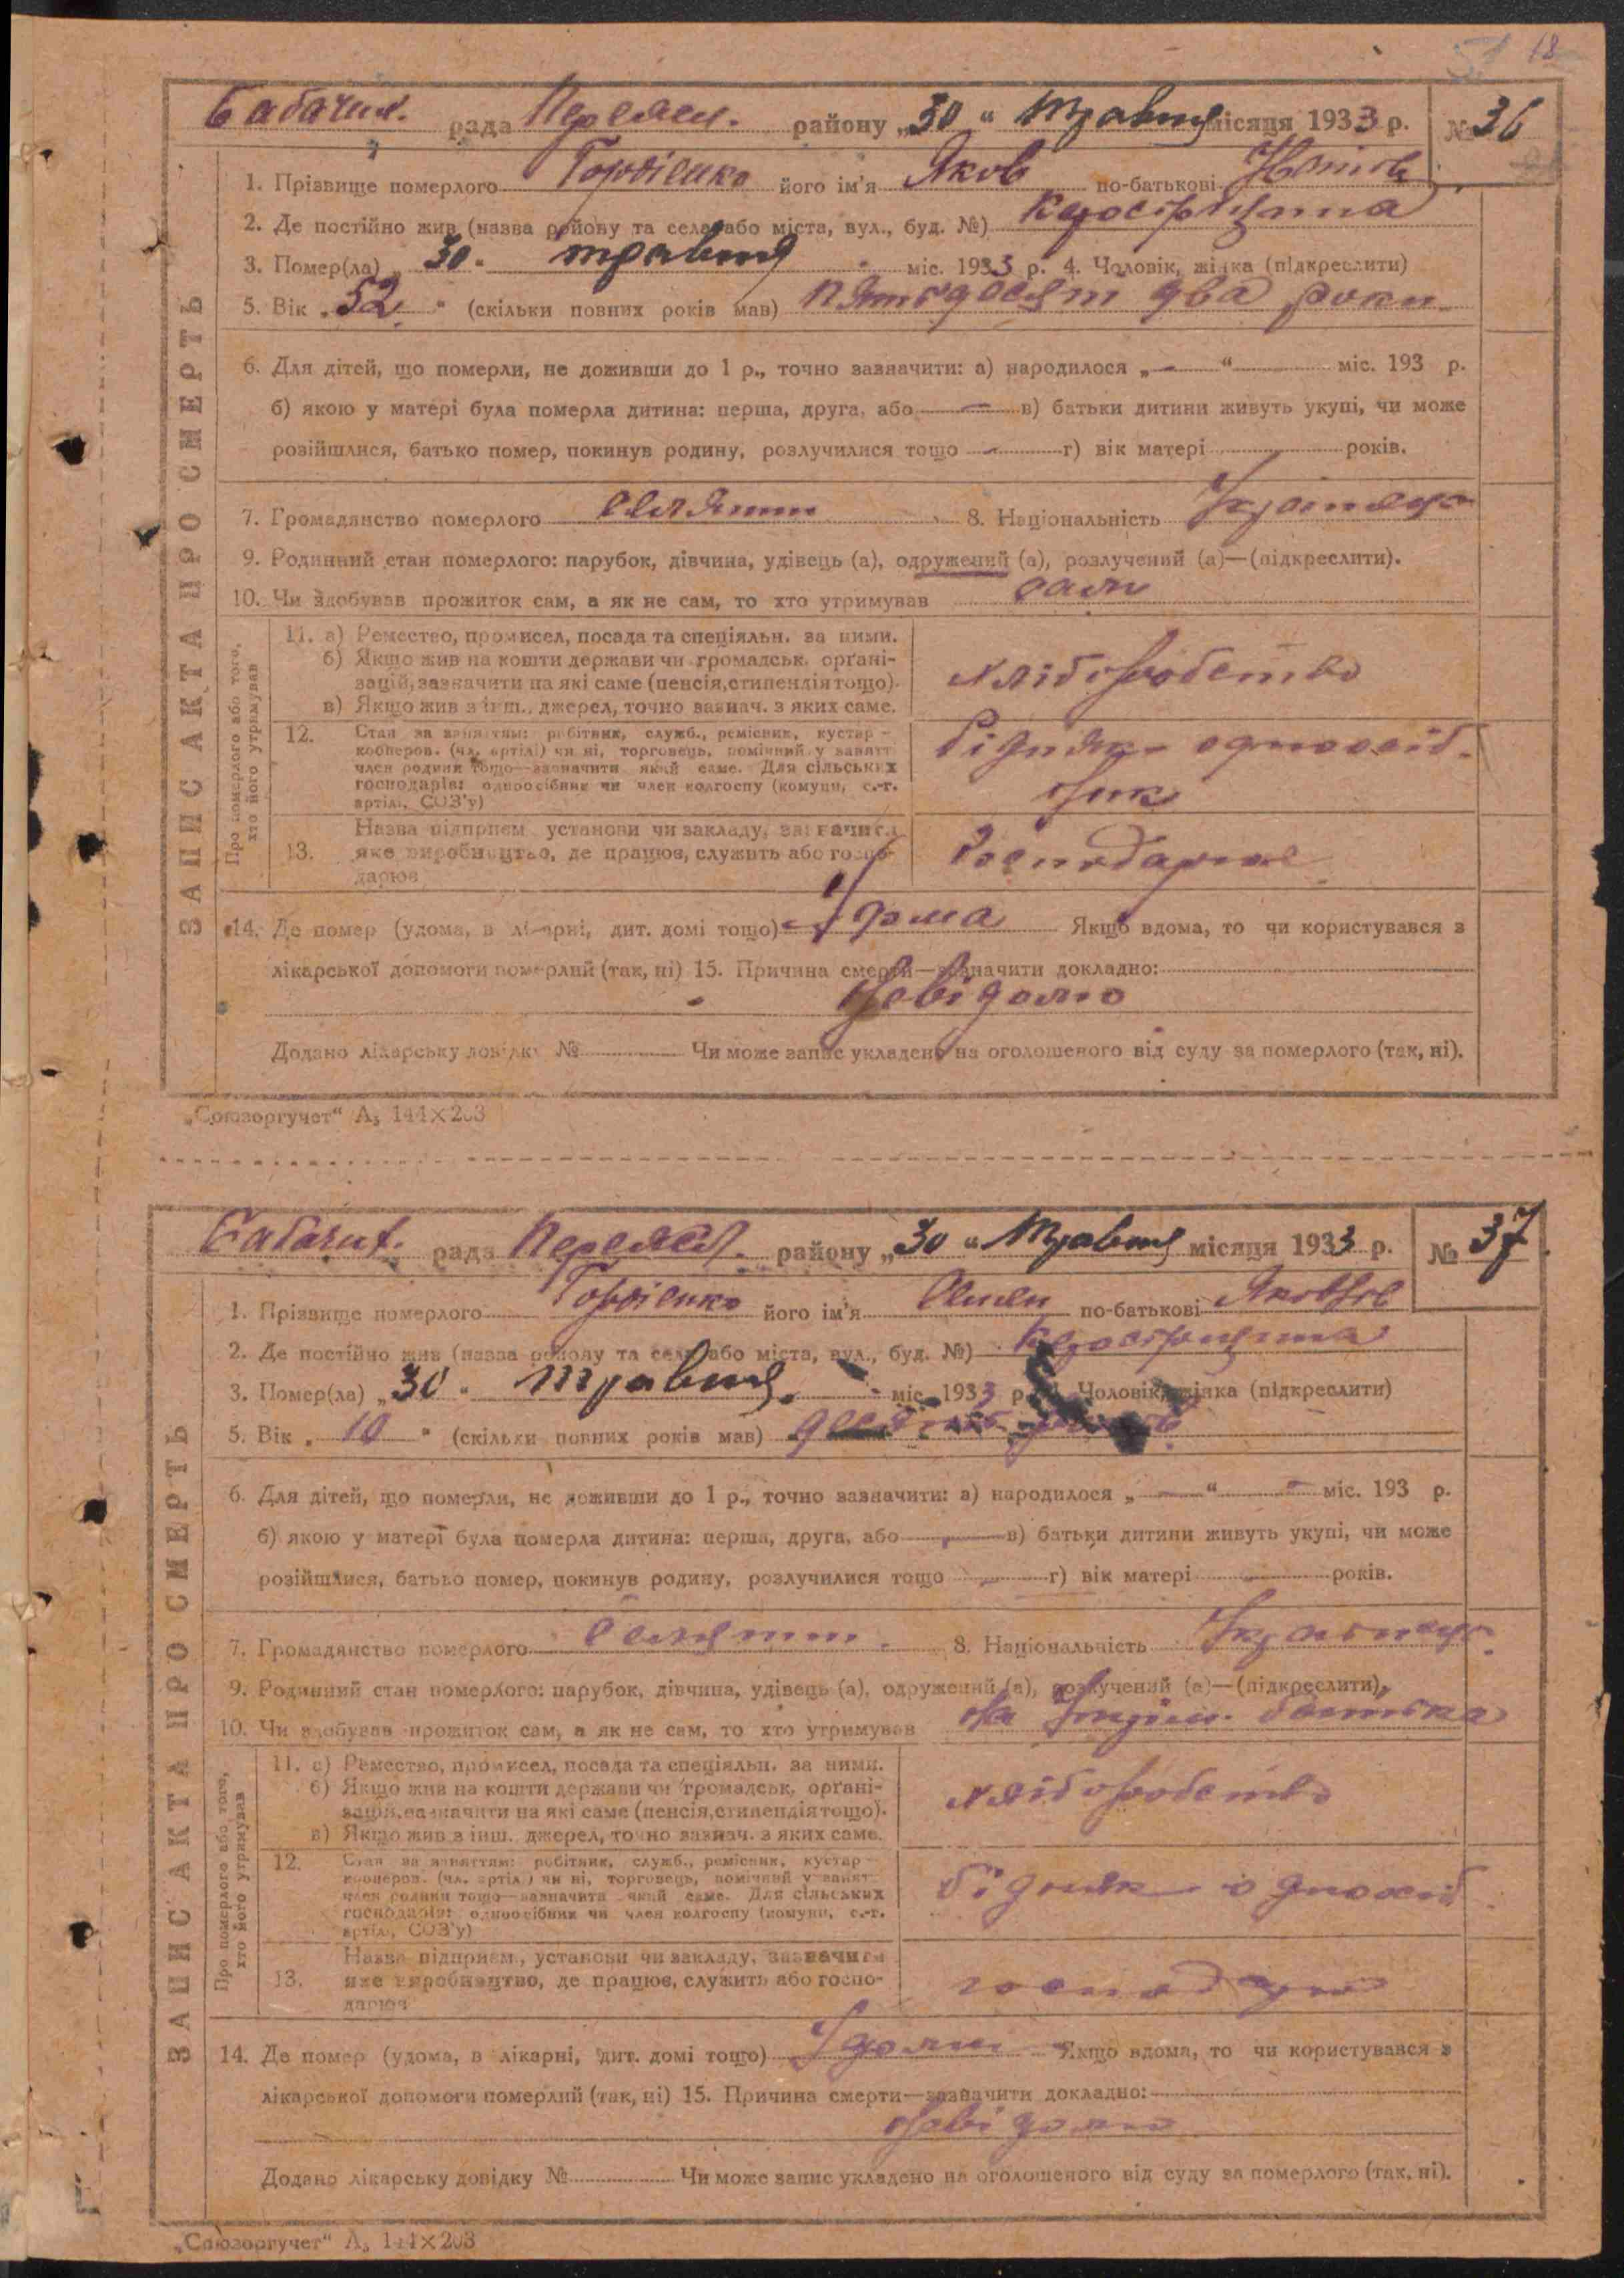 51 18
Бабачих. рада Переясл. району „30“ Травня місяця 1933 р. № 36
1. Прізвище померлого Гордієнко його ім'я Яков по-батькові
2. Де постійно жив (назва району та села або міста, вул., буд. №)
3. Помер(ла) „30“ травня міс. 1933 р. 4. Чоловік, жінка (підкреслити)
5. Вік „52“ (скільки повних років мав) пятьдесят два роки
6. Для дітей, що померли, не доживши до 1 р., точно зазначити: а) народилося „—“ міс. 193 р.
б) якою у матері була померла дитина: перша, друга, або — в) батьки дитини живуть укупі, чи може
розійшлися, батько помер, покинув родину, розлучилися тощо — г) вік матері років.
7. Громадянство померлого селянин 8. Національність Українець
9. Родинний стан померлого: парубок, дівчина, удівець (а), одружений (а), розлучений (а)—(підкреслити).
10. Чи здобував прожиток сам, а як не сам, то хто утримував сам
ЗАПИС АКТА ПРО СМЕРТЬ
Про померлого або того, хто його утримував
11. а) Ремество, промисел, посада та спеціяльн. за ними.
б) Якщо жив на кошти держави чи громадськ. орґані-
зацій, зазначити на які саме (пенсія, стипендія тощо).
в) Якщо жив з інш. джерел, точно зазнач. з яких саме.
хліборобство
12. Стан за заняттям: робітник, служб., ремісник, кустар-
кооперов. (чл. артілі) чи ні, торговець, помічний у занятт
член родини тощо—зазначити який саме. Для сільських
господарів: одноосібник чи член колгоспу (комуни, с.-г.
артілі, СОЗ'у)
бідняк одноосіб-
ник
13. Назва підприєм. установи чи закладу, зазначити
яке виробництво, де працює, служить або госпо-
дарює
14. Де помер (удома, в лікарні, дит. домі тощо) Якщо вдома, то чи користувався з
лікарської допомоги померлий (так, ні) 15. Причина смерти—зазначити докладно:
невідомо
Додано лікарську довідку № Чи може запис укладено на оголошеного від суду за померлого (так, ні).
„Союзоргучет“ А₅ 144×203
Бабачих. рада Переясл. району „30“ Травня місяця 1933 р. № 37
1. Прізвище померлого Гордієнко його ім'я Семен по-батькові Яковлев
2. Де постійно жив (назва району та села або міста, вул., буд. №)
3. Помер(ла) „30“ травня міс. 1933 р. 4. Чоловік, жінка (підкреслити)
5. Вік „10“ (скільки повних років мав) десять років
6. Для дітей, що померли, не доживши до 1 р., точно зазначити: а) народилося „—“ — міс. 193 р.
б) якою у матері була померла дитина: перша, друга, або — в) батьки дитини живуть укупі, чи може
розійшлися, батько помер, покинув родину, розлучилися тощо — г) вік матері — років.
7. Громадянство померлого селянин. 8. Національність Українець.
9. Родинний стан померлого: парубок, дівчина, удівець (а), одружений (а), розлучений (а)—(підкреслити).
10. Чи здобував прожиток сам, а як не сам, то хто утримував на утрим. батька
ЗАПИС АКТА ПРО СМЕРТЬ
Про померлого або того, хто його утримував
11. а) Ремество, промисел, посада та спеціяльн. за ними.
б) Якщо жив на кошти держави чи громадськ. орґані-
зацій, зазначити на які саме (пенсія, стипендія тощо).
в) Якщо жив з інш. джерел, точно зазнач. з яких саме.
хліборобство
12. Стан за заняттям: робітник, служб., ремісник, кустар-
кооперов. (чл. артілі) чи ні, торговець, помічний у занят
член родини тощо—зазначити який саме. Для сільських
господарів: одноосібник чи член колгоспу (комуни, с.-г.
артілі, СОЗ'у)
бідняк одноосіб.
13. Назва підприєм., установи чи закладу, зазначити
яке виробництво, де працює, служить або госпо-
дарює
14. Де помер (удома, в лікарні, дит. домі тощо) Удома Якщо вдома, то чи користувався з
лікарської допомоги померлий (так, ні) 15. Причина смерти—зазначити докладно:
невідомо
Додано лікарську довідку № Чи може запис укладено на оголошеного від суду за померлого (так, ні).
„Союзоргучет“ А₅ 144×203